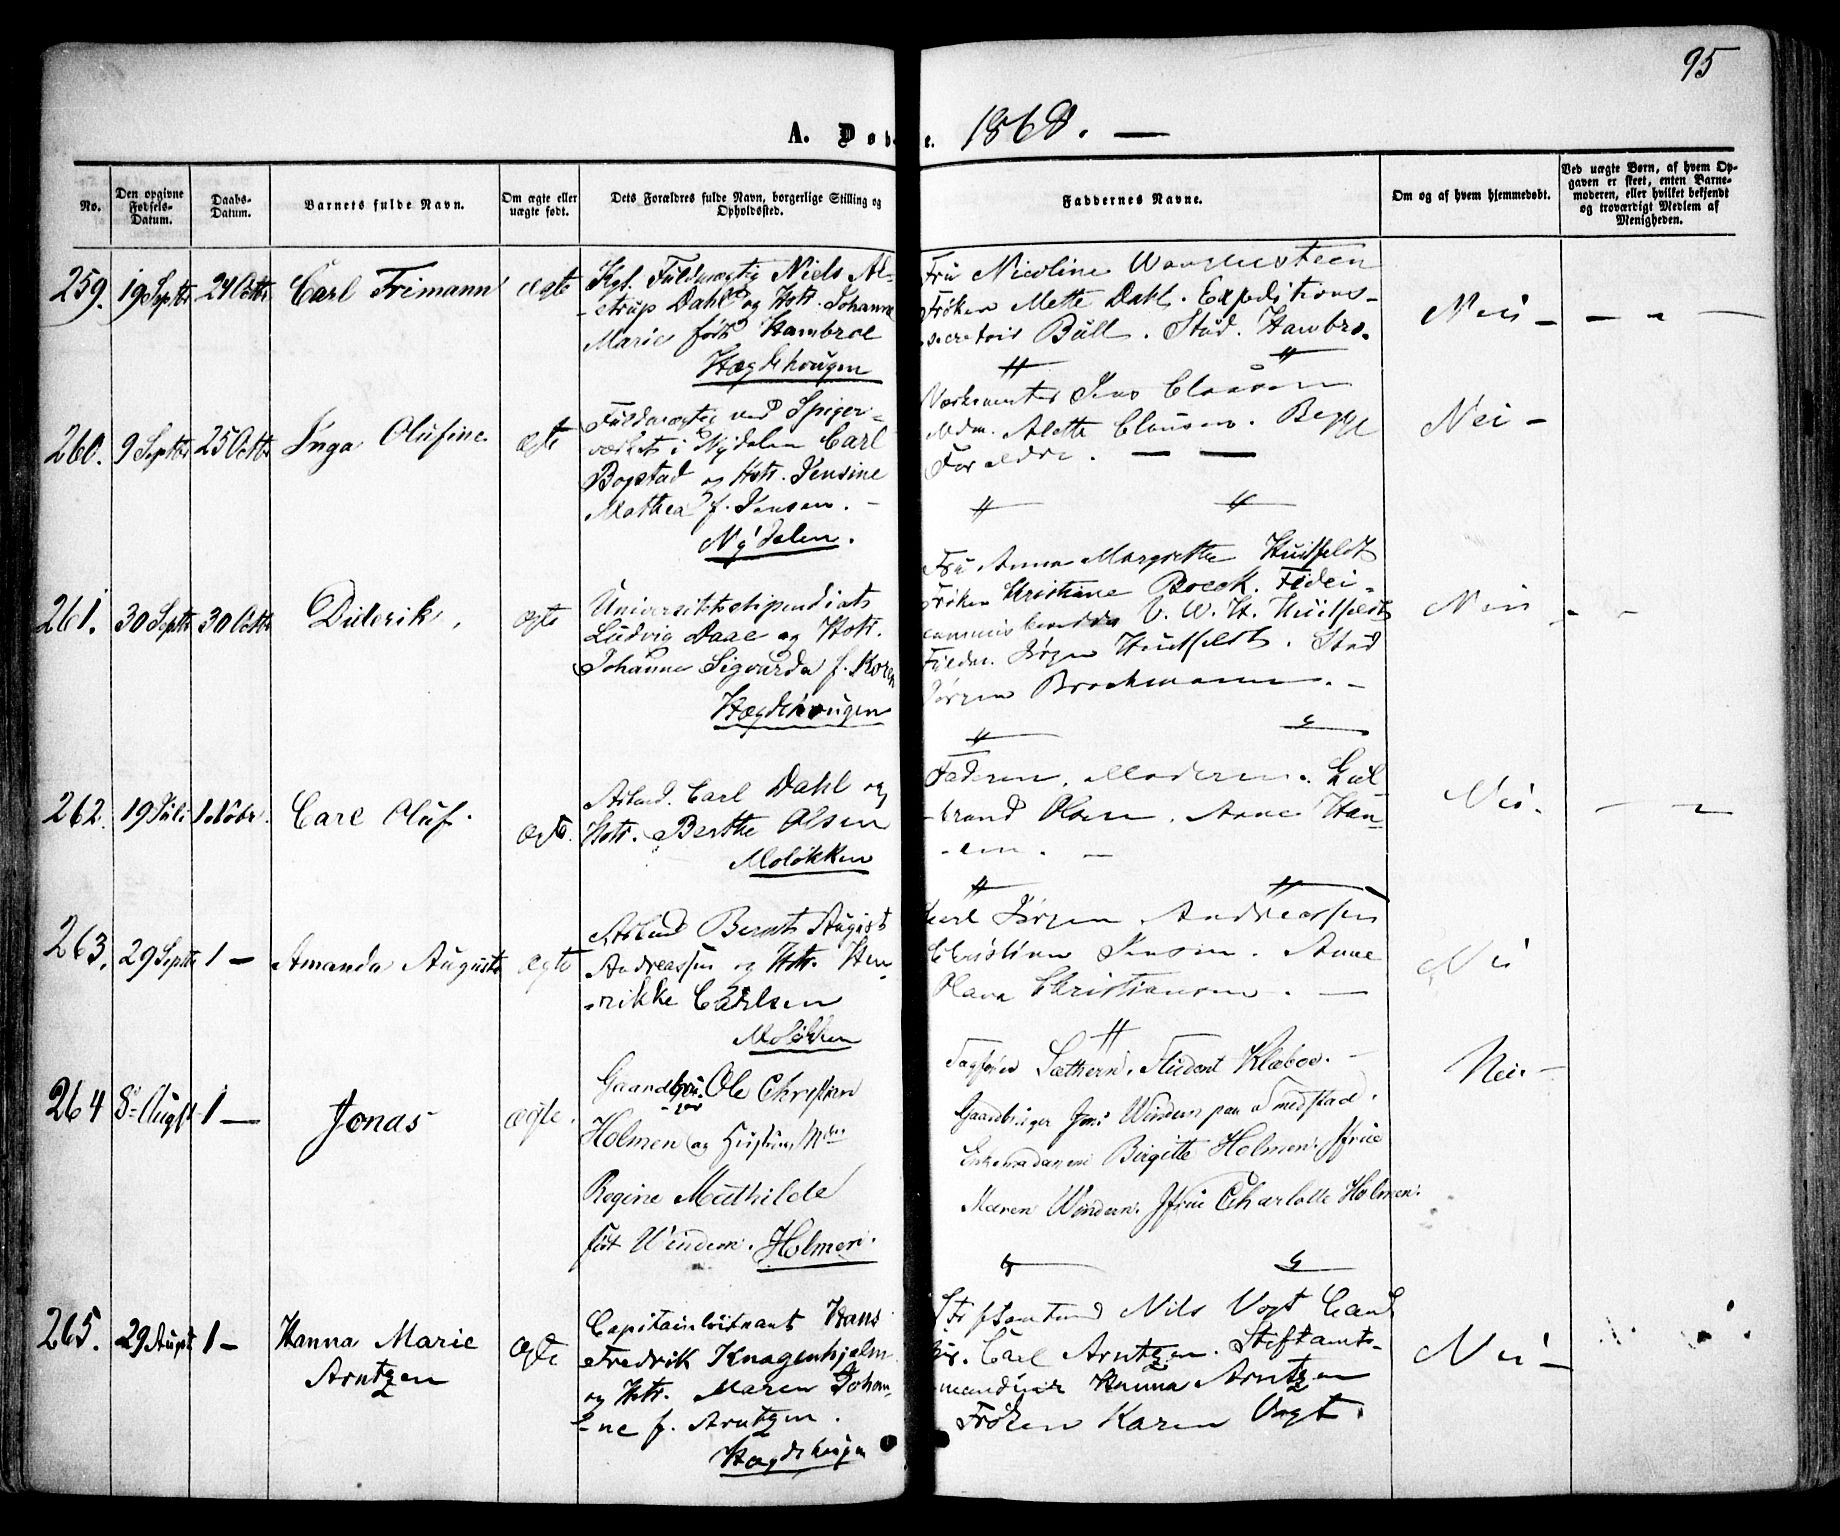 95
A. Døb e. 1868. —
No.
Den opgivne Fødsels-Datum.
Daabs-Datum.
Barnets fulde Navn.
Om ægte eller uægte født.
Dets Forældres fulde Navn, borgerlige Stilling og Opholdssted.
Faddernes Navne.
Om og af hvem hjemmedøbt.
Ved uægte Børn, af hvem Opgaven er skeet, enten Barnemoderen, eller hvilket bekjendt og troværdigt Medlem af Menigheden.
259. 19 Septbr 24 Octbr Carl Frimann ægte
Kgl. Fuldmægtig Niels Al-
-strup Dahl og Hstr. Johanne
Marie født Hambroe
Hægdehougen
Fru Nicoline
Frøken Mette Dahl. Expeditions-
secretair Bull. Stud. Hambro.
Nei - - - -
260. 9 Septbr 25 Octbr Inga Olufine ægte
Fuldmægtig ved Spiger-
værket i Nydalen Carl
Bogstad og Hstr. Jensine
Mathea f. Jensen. -
Nydalen.
Værksmester Jens Clausen
Mdm. Alette Clausen. Begge
Forældre. — —
Nei -
261. 30 Septbr 30 Octbr Diderik. ægte
Universitetsstipendiat
Ludvig Daae og Hstr.
Johanne Sigvarda f. Koren
Hægdehougen
Fru Anna Margrethe Huitfeldt
Frøken Christiane Boeck. Fidei-
commisbesidder C. W. H. Huitfeldt
Fuldm. Jørgen Huitfeldt. Stud
Jørgen Brockmann. -
Nei - -
262. 19 Juli 1 Novbr. Carl Oluf. ægte.
Arbeid. Carl Dahl og
Hstr. Berthe Olsen
Moløkken
Faderen. Moderen. Gul
-brand Olsen. Anne Han-
-sen. -
Nei. - -
263. 29 Septbr 1 — Amanda Augusta ægte
Arbeid Bernt August
Andreassen og Hstr. Hen-
-rikke Carlsen
Moløkken
Karl Jørgen Andreassen
Christian Jensen. Anne
Olava Christiansen. —
Nei
264 8de Augst 1 — Jonas ægte.
Gaardbru-
-ger Ole Christian
Holmen og Hustru
Regine Mathilde
født Windern. Holmen.
Sagfører Sæthern. Student Klæboe. -
Gaardbruger Jens Windern paa Smedstad.
Enkemadame Birgitte Holmen. Jfrue
Maren Windern. Jfrue Charlotte Holmen.
Nei. -
265. 29 Augst 1 - Hanna Marie
Arntzen ægte
Capitainlöitnant Hans
Fredrik Knagenhjelm
og Hstr. Maren Johan-
-ne f. Arntzen.
Hægdehougen
Stiftamtmand Nils Vogt Cand
jur. Carl Arntzen. Stiftamt-
mandinde Hanna Arntzen
Frøken Karen Vogt.
Nei -